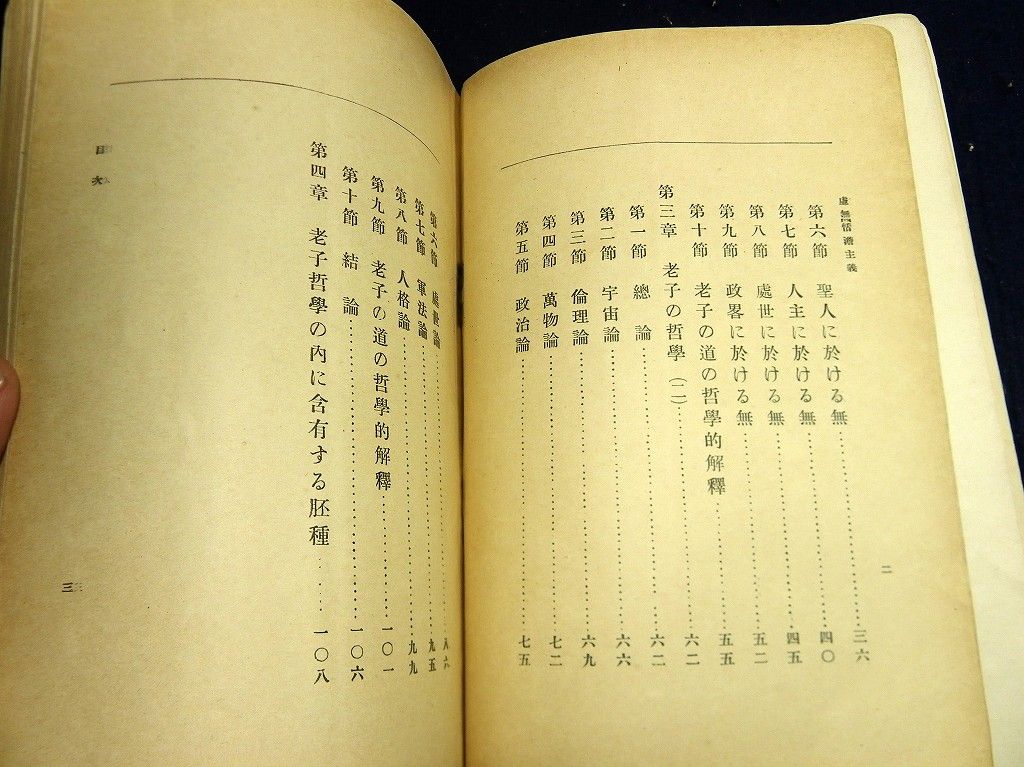 虛無恬澹主義
第六節 聖人に於ける無……………三六
第七節 人主に於ける無……………四〇
第八節 處世に於ける無……………四五
第九節 政畧に於ける無……………五二
第十節 老子の道の哲學的解釋……………五五
第三章 老子の哲學(二)……………六二
第一節 總論……………六二
第二節 宇宙論……………六六
第三節 倫理論……………六九
第四節 萬物論……………七二
第五節 政治論……………七五
二
目次
第六節 處世論……………八六
第七節 軍法論……………九五
第八節 人格論……………九九
第九節 老子の道の哲學的解釋……………一〇一
第十節 結論……………一〇六
第四章 老子哲學の內に含有する胚種……一〇八
三